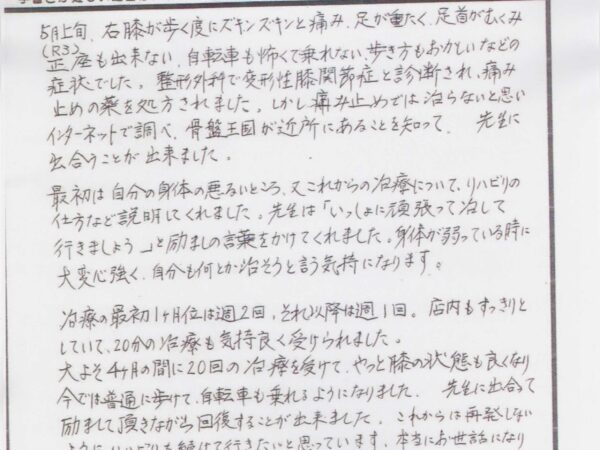 5月上旬、右膝が歩く度にズキンズキンと痛み、足が重たく、足首がむくみ
(R3)
正座も出来ない、自転車も怖くて乗れない、歩き方もおかしいなどの
症状でした。整形外科で変形性膝関節症と診断され、痛み
止めの薬を処方されました。しかし痛み止めでは治らないと思い
インターネットで調べ、骨盤王国が近所にあることを知って、 先生に
出合うことが出来ました。
最初は自分の身体の悪るいところ、又これからの治療について、リハビリの
仕方など説明してくれました。先生は「いっしょに頑張って治して
行きましょう」と励ましの言葉をかけてくれました。身体が弱っている時に
大変心強く、自分も何とか治そうと言う気持になります。
治療の最初1ヶ月位は週2回、それ以降は週1回。店内もすっきりと
していて、20分の治療も気持良く受けられました。
大よそ4ヶ月の間に20回の治療を受けて、やっと膝の状態も良くなり
今では普通に歩けて、自転車も乗れるようになりました。 先生に出合って
励まして頂きながら回復することが出来ました。これからは再発しない
ようにリハビリも続けて行きたいと思っています。本当にお世話になり